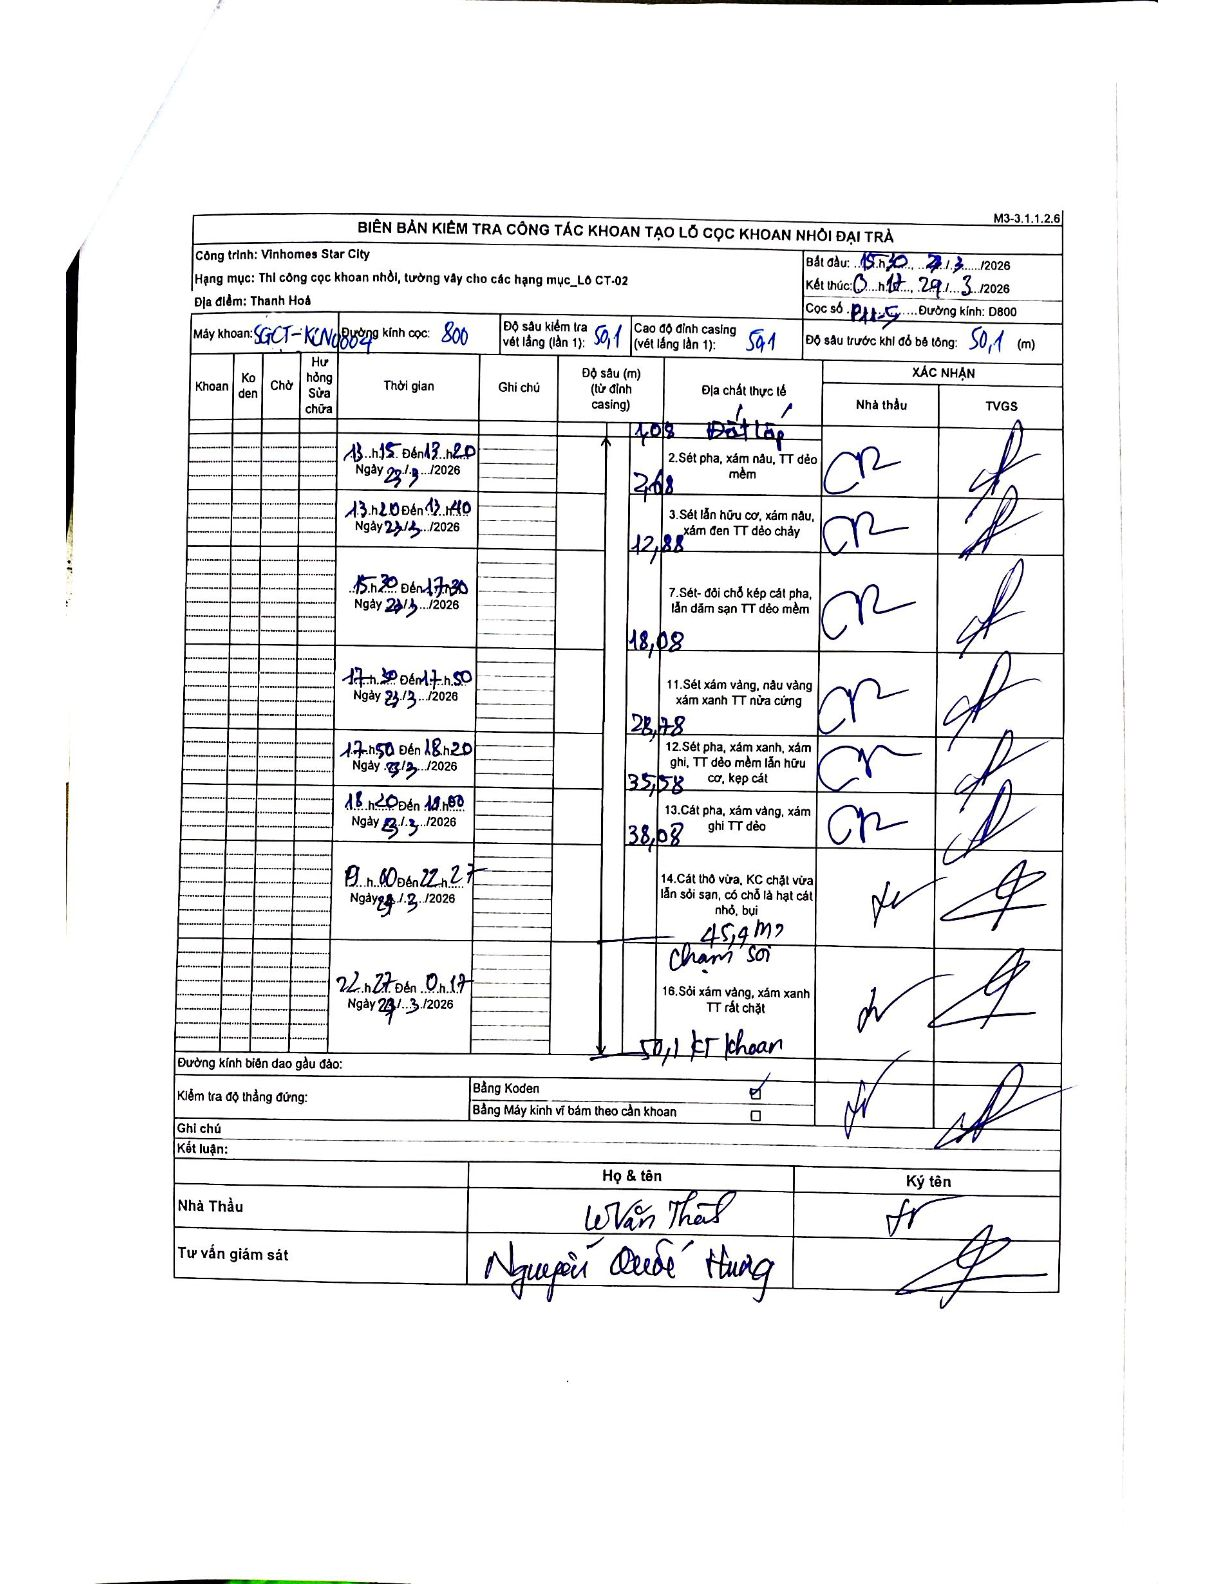 M3-3.1.1.2.6
BIÊN BẢN KIỂM TRA CÔNG TÁC KHOAN TẠO LỖ CỌC KHOAN NHỒI ĐẠI TRÀ
Công trình: Vinhomes Star City
Hạng mục: Thi công cọc khoan nhồi, tường vây cho các hạng mục_Lô CT-02
Địa điểm: Thanh Hoá
Bắt đầu: 15 h 30, /3/2026
Kết thúc: 0 h 17, 29/3/2026
Cọc số Đường kính: D800
Máy khoan: Đường kính cọc: 800
Độ sâu kiểm tra vét lắng (lần 1): 50,1
Cao độ đỉnh casing (vét lắng lần 1): 50,1
Độ sâu trước khi đổ bê tông: 50,1 (m)
Khoan Ko đen Chờ Hư hỏng Sửa chữa Thời gian Ghi chú Độ sâu (m) (từ đỉnh casing) Địa chất thực tế XÁC NHẬN
Nhà thầu TVGS
1,08 Đất lấp
13 h 15 Đến 13 h 20
Ngày /3/2026
2.Sét pha, xám nâu, TT dẻo mềm
2,68
13 h 20 Đến 13 h 40
Ngày /3/2026
3.Sét lẫn hữu cơ, xám nâu, xám đen TT dẻo chảy
12,88
15 h 30 Đến 17 h 30
Ngày /3/2026
7.Sét- đôi chỗ kép cát pha, lẫn dăm sạn TT dẻo mềm
18,08
17 h 30 Đến 17 h 50
Ngày /3/2026
11.Sét xám vàng, nâu vàng xám xanh TT nửa cứng
28,78
17 h 50 Đến 18 h 20
Ngày /3/2026
12.Sét pha, xám xanh, xám ghi, TT dẻo mềm lẫn hữu cơ, kẹp cát
35,58
18 h 20 Đến
Ngày /3/2026
13.Cát pha, xám vàng, xám ghi TT dẻo
38,08
19 h 00 Đến 22 h 27
Ngày /3/2026
14.Cát thô vừa, KC chặt vừa lẫn sỏi sạn, có chỗ là hạt cát nhỏ, bụi
45,9 m
Chạm sỏi
22 h 27 Đến 0 h 17
Ngày /3/2026
16.Sỏi xám vàng, xám xanh TT rất chặt
50,1 KT khoan
Đường kính biên dao gầu đào:
Kiểm tra độ thẳng đứng:
Bằng Koden ☑
Bằng Máy kinh vĩ bám theo cần khoan ☐
Ghi chú
Kết luận:
Họ & tên Ký tên
Nhà Thầu
Tư vấn giám sát Nguyễn Quốc Hưng